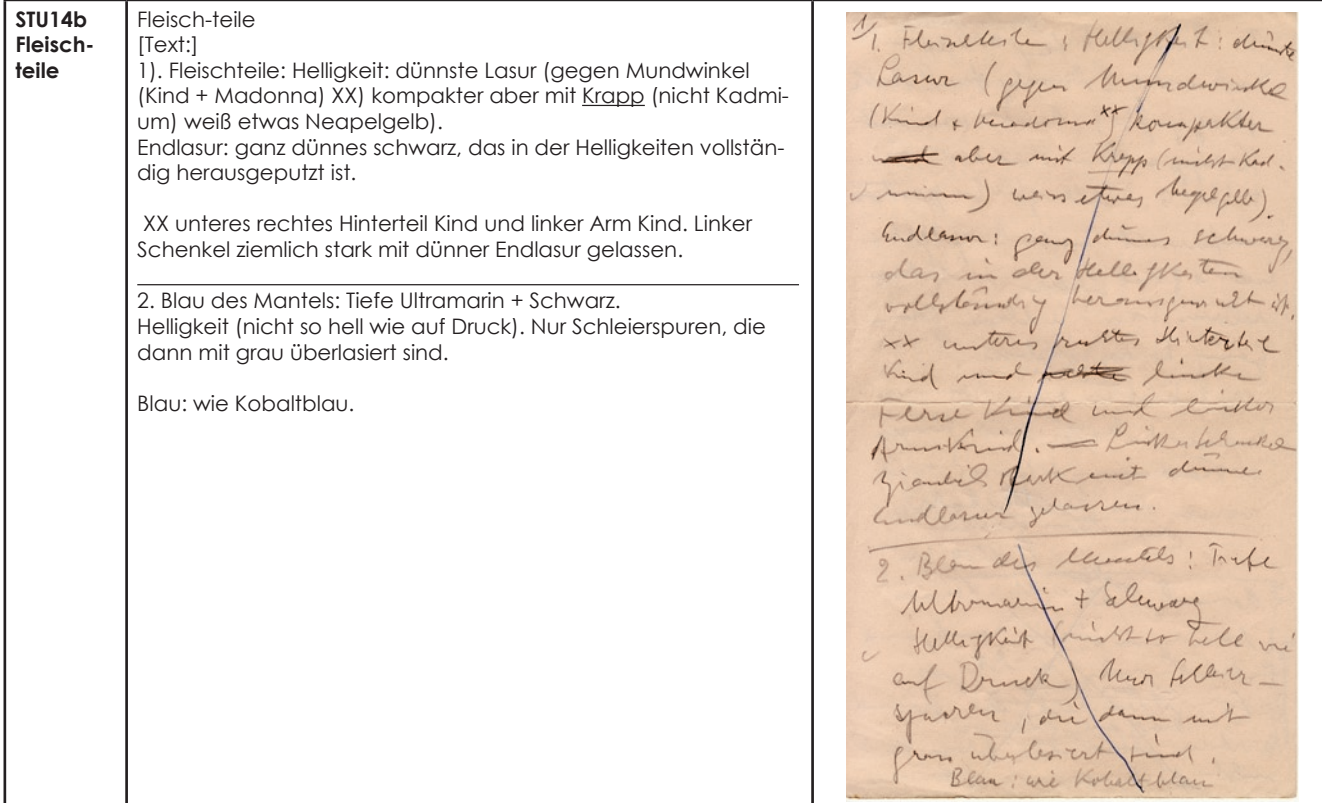 STU14b
Fleisch-
teile
Fleisch-teile
[Text:]
1). Fleischteile: Helligkeit: dünnste Lasur (gegen Mundwinkel
(Kind + Madonna) XX) kompakter aber mit Krapp (nicht Kadmi-
um) weiß etwas Neapelgelb).
Endlasur: ganz dünnes schwarz, das in der Helligkeiten vollstän-
dig herausgeputzt ist.
XX unteres rechtes Hinterteil Kind und linker Arm Kind. Linker
Schenkel ziemlich stark mit dünner Endlasur gelassen.
2. Blau des Mantels: Tiefe Ultramarin + Schwarz.
Helligkeit (nicht so hell wie auf Druck). Nur Schleierspuren, die
dann mit grau überlasiert sind.
Blau: wie Kobaltblau.
1. Fleischteile: Helligkeit: dünnste
Lasur (gegen Mundwinkel
(Kind + Madonna xx) kompakter
aber mit Krapp (nicht Kad-
mium) weiss etwas Neapelgelb).
Endlasur: ganz dünnes schwarz,
das in der Helligkeiten
vollständig herausgeputzt ist.
xx unteres rechtes Hinterteil
Kind und linke
Ferse Kind und linker
Arm Kind. — Linker Schenkel
ziemlich stark mit dünner
Endlasur gelassen.
2. Blau des Mantels: Tiefe
Ultramarin + Schwarz
Helligkeit (nicht so hell wie
auf Druck) Nur Schleier-
spuren, die dann mit
grau überlasiert sind.
Blau: wie Kobaltblau